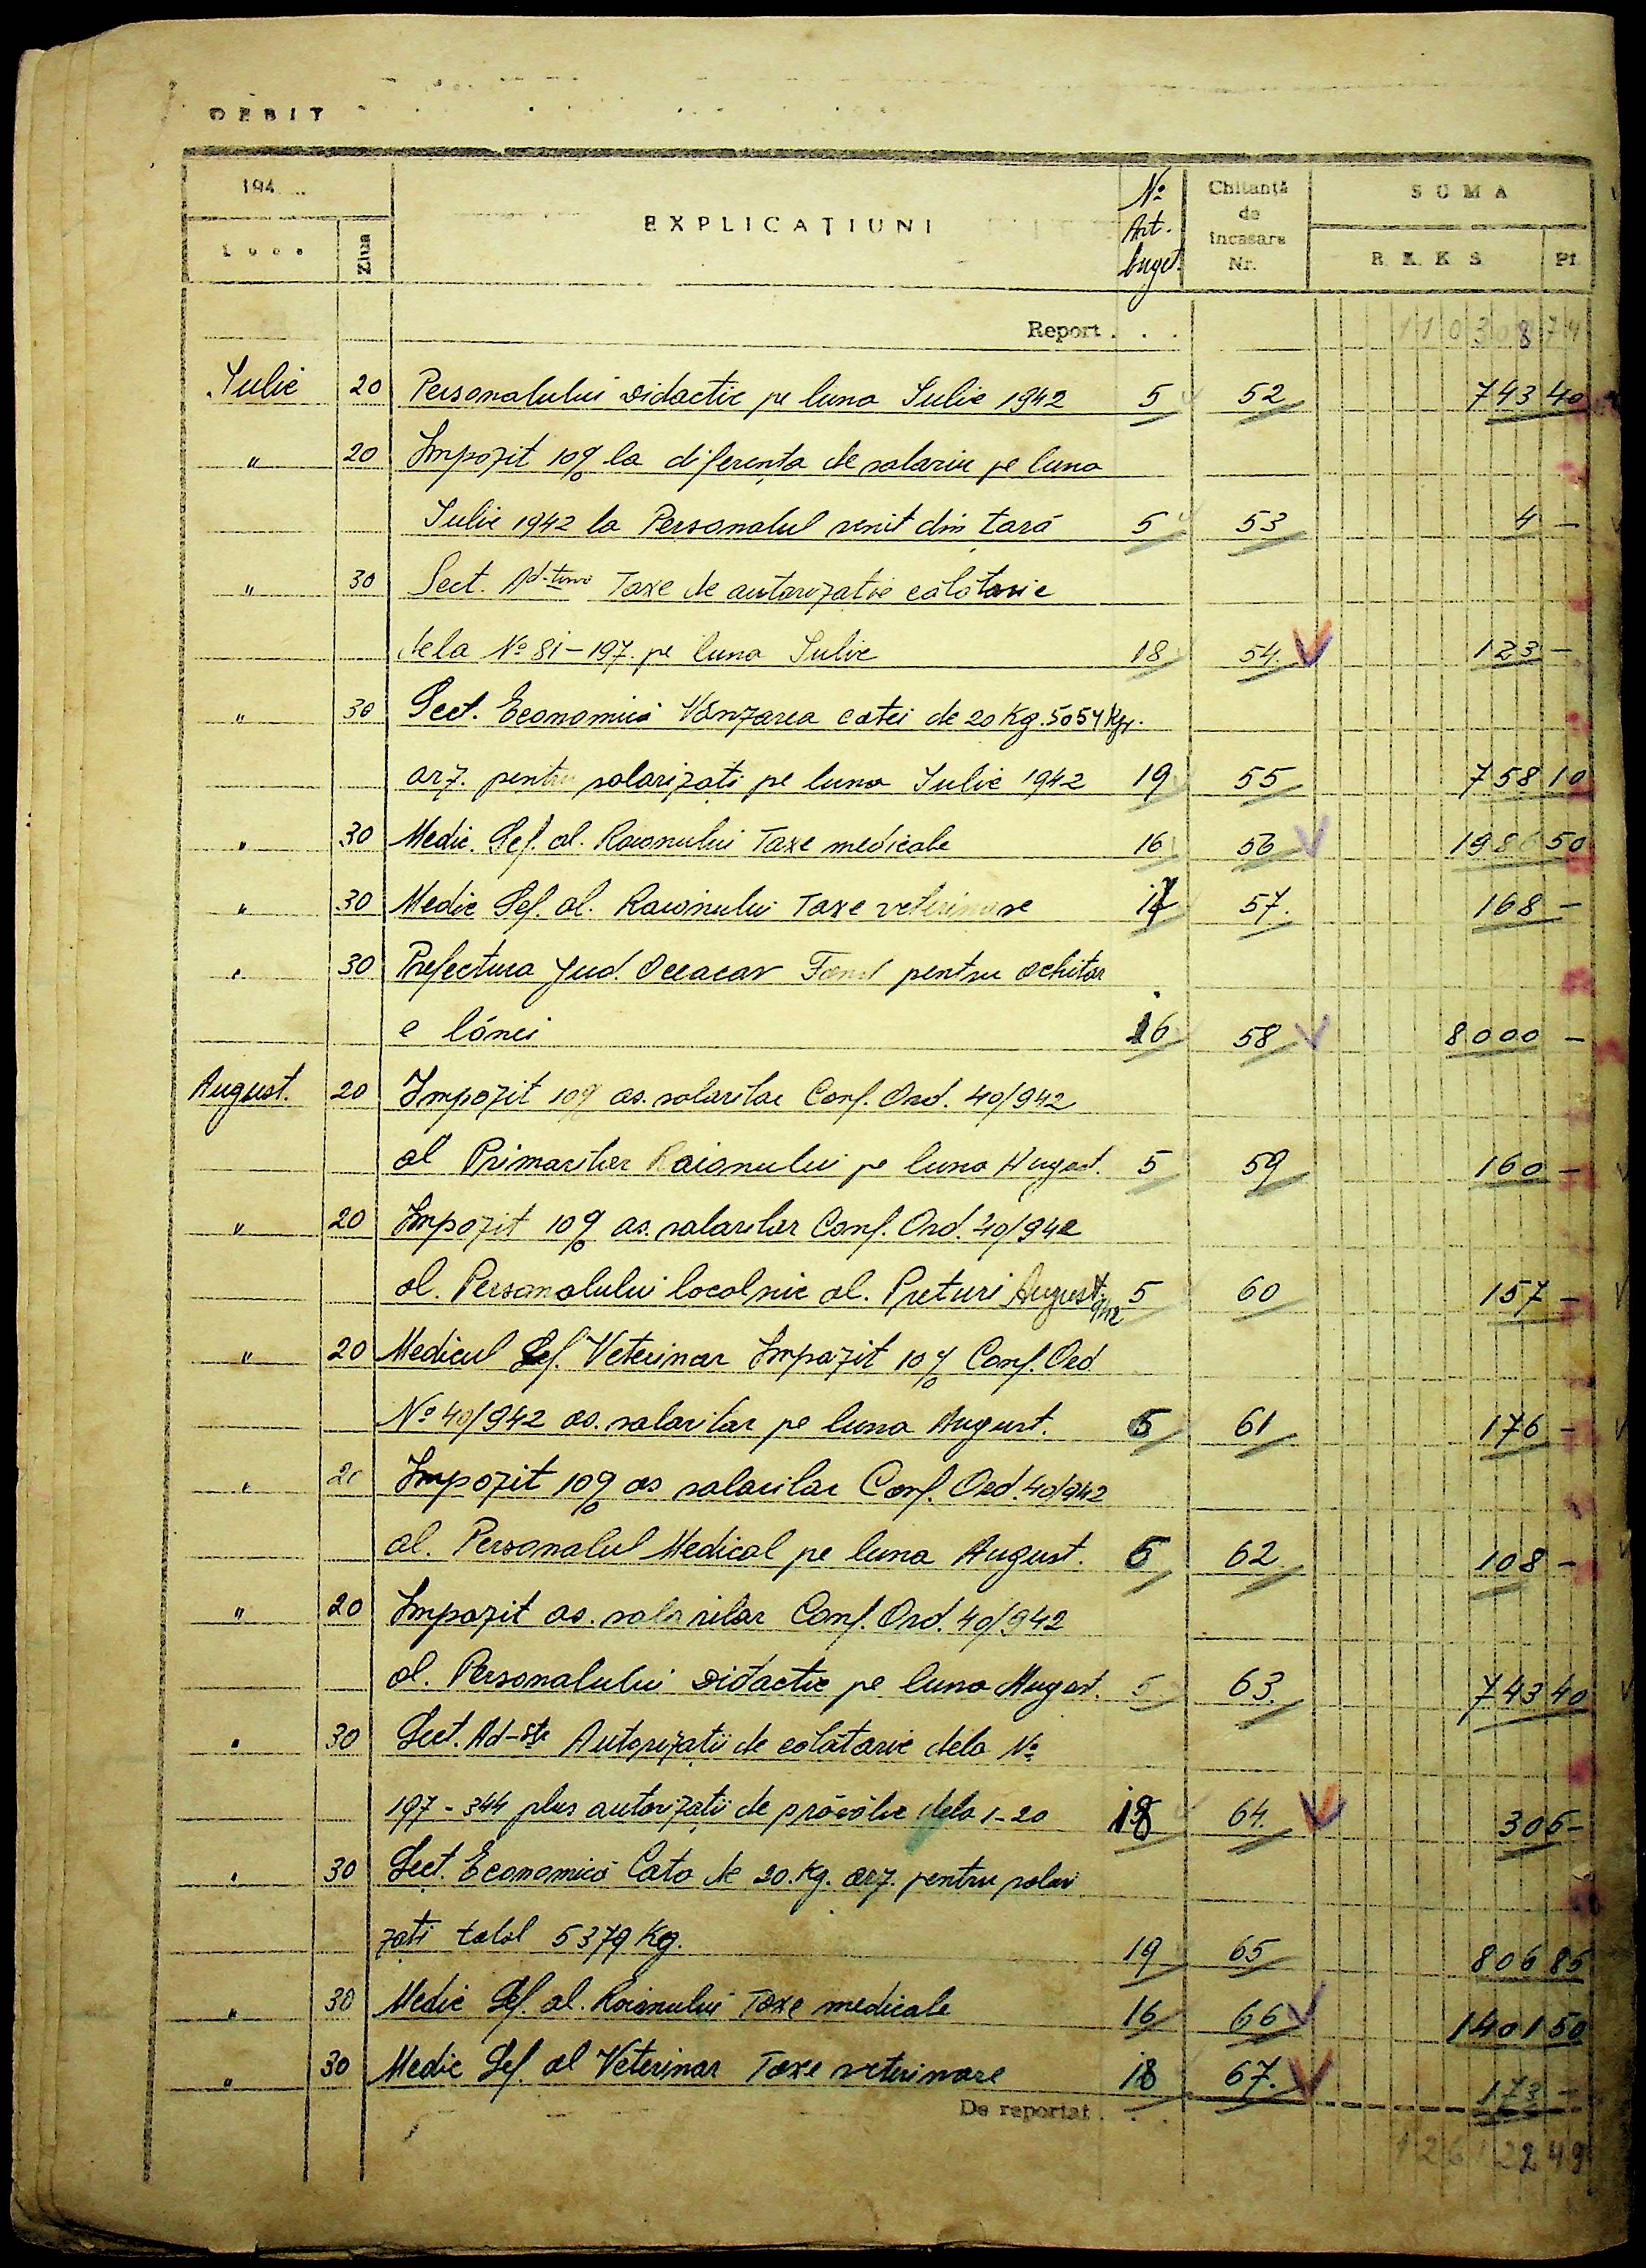 DEBIT
194...
Luna
Ziua
EXPLICAȚIUNI
No Art. buget.
Chitanță de încasare Nr.
SUMA
R.K.K.S. Pf.
Report . . . 110308 74
Iulie 20 Personalului Didactic pe luna Iulie 1942 5 52 743 40
" 20 Impozit 10% la diferența de salariu pe luna
Iulie 1942 la Personalul venit din țară 5 53 4 —
" 30 Sect. Ad-tiva Taxe de autorizație călătorie
dela No 81-197. pe luna Iulie 18 54. 123 —
" 30 Sect. Economică Vânzarea cotei de 20 Kg. 5054 Kgr.
arz. pentru salarizați pe luna Iulie 1942 19 55 758 10
" 30 Medic. Șef. al. Raionului Taxe medicale 16 56 1986 50
" 30 Medic Șef. al. Raionului Taxe veterinare 17 57. 168 —
" 30 Prefectura Jud. Oceacov pentru
e lânei 16 58 8000 —
August. 20 Impozit 10% as. salarilor Conf. Ord. 40/942
al Primarilor Raionului pe luna August. 5 59 160 —
" 20 Impozit 10% as. salarilor Conf. Ord. 40/942
al. Personalului localnic al. Preturi August. 942 5 60 157 —
" 20 Medicul Șef. Veterinar Impozit 10% Conf. Ord
No 40/942 as. salarilor pe luna August. 5 61 176 —
" 20 Impozit 10% as salarilor Conf. Ord. 40/942
al. Personalul Medical pe luna August. 5 62 108 —
" 20 Impozit as. salarilor Conf. Ord. 40/942
al. Personalului Didactic pe luna August. 5 63. 743 40
" 30 Sect. Ad-tă Autorizații de călătorie dela No
197 - 344 plus autorizații de dela 1-20 18 64. 306 —
" 30 Sect. Economică Cota de 20. Kg. arz. pentru salari
zați total 5379 Kg. 19 65 806 85
" 30 Medic Șef. al. Raionului Taxe medicale 16 66 1401 50
" 30 Medic Șef. al Veterinar Taxe veterinare 18 67. 173 —
De reportat . . . 126122 49